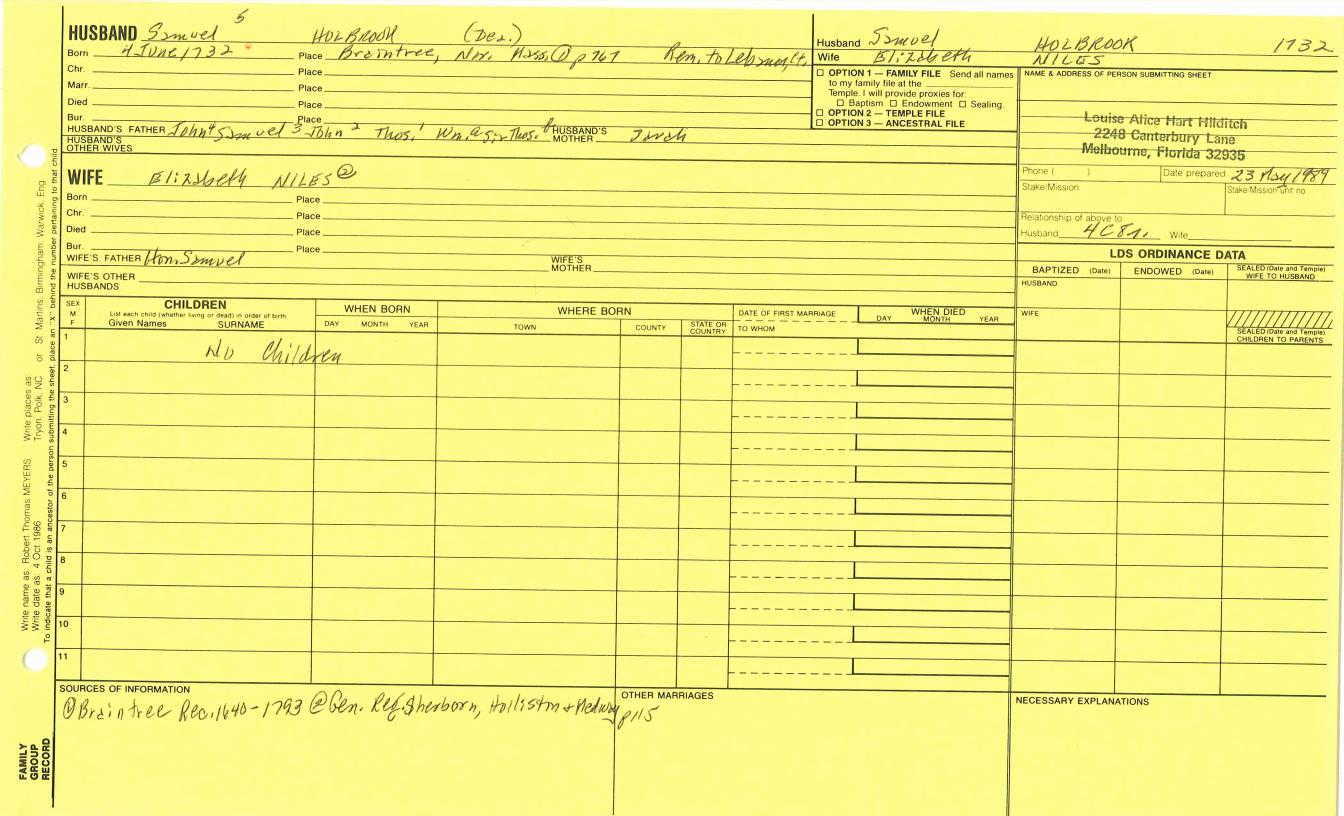 5
HUSBAND Samuel HOLBROOK (Des.)
Born 4 June, 1732 Place Braintree, Nor. Mass. ① p 767 Rem. to Lebanon, Ct.
Chr. Place
Marr. Place
Died Place
Bur. Place
HUSBAND'S FATHER John⁴ Samuel³ John² Thos.¹ Wm. Thos. HUSBAND'S MOTHER
HUSBAND'S OTHER WIVES
WIFE Elizabeth NILES ②
Born Place
Chr. Place
Died Place
Bur. Place
WIFE'S FATHER Hon. Samuel WIFE'S MOTHER
WIFE'S OTHER HUSBANDS
Husband Samuel HOLBROOK 1732
Wife Elizabeth NILES
☐ OPTION 1 — FAMILY FILE Send all names
to my family file at the
Temple. I will provide proxies for:
☐ Baptism ☐ Endowment ☐ Sealing.
☐ OPTION 2 — TEMPLE FILE
☐ OPTION 3 — ANCESTRAL FILE
NAME & ADDRESS OF PERSON SUBMITTING SHEET
Louise Alice Hart Hilditch
2248 Canterbury Lane
Melbourne, Florida 32935
Phone ( ) Date prepared 23 May 1989
Stake/Mission Stake/Mission unit no.
Relationship of above to
Husband 4C8r. Wife
LDS ORDINANCE DATA
BAPTIZED (Date) ENDOWED (Date) SEALED (Date and Temple) WIFE TO HUSBAND
HUSBAND
WIFE
SEALED (Date and Temple) CHILDREN TO PARENTS
SEX M F
CHILDREN
List each child (whether living or dead) in order of birth
Given Names SURNAME
WHEN BORN
DAY MONTH YEAR
WHERE BORN
TOWN COUNTY STATE OR COUNTRY
DATE OF FIRST MARRIAGE
TO WHOM
WHEN DIED
DAY MONTH YEAR
1 No Children
2
3
4
5
6
7
8
9
10
11
SOURCES OF INFORMATION
① Braintree Rec. 1640-1793 ② Gen. Reg. Sherborn, Holliston & Medway p115
OTHER MARRIAGES
NECESSARY EXPLANATIONS
Write name as: Robert Thomas MEYERS Write places as Tryon, Polk, NC or St Martins, Birmingham, Warwick, Eng
Write date as: 4 Oct 1986
To indicate that a child is an ancestor of the person submitting the sheet, place an "X" behind the number pertaining to that child
FAMILY GROUP RECORD